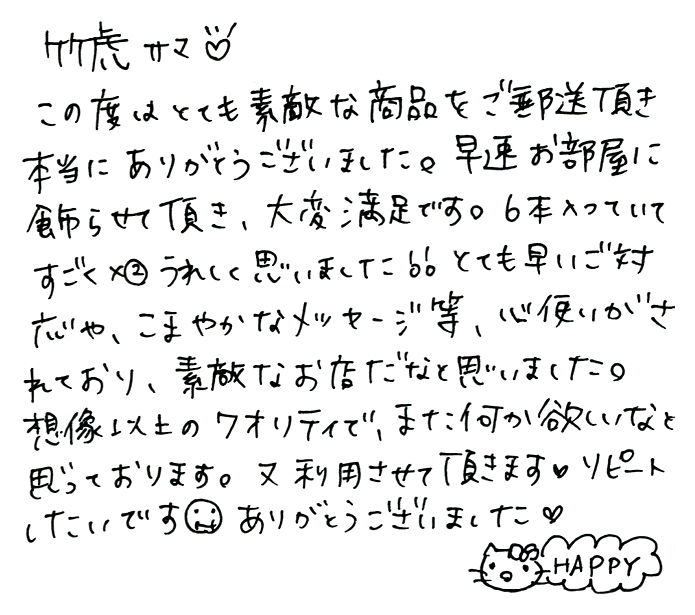 竹虎サマ♡
この度はとても素敵な商品をご郵送頂き
本当にありがとうございました。早速お部屋に
飾らせて頂き、大変満足です。6本入っていて
すごく×②うれしく思いましたo̔o̔とても早いご対
応や、こまやかなメッセージ等、心使いがさ
れており、素敵なお店だなと思いました。
想像以上のクオリティで、また何か欲しいなと
思っております。又利用させて頂きます♥リピート
したいです☺ありがとうございました♡
HAPPY